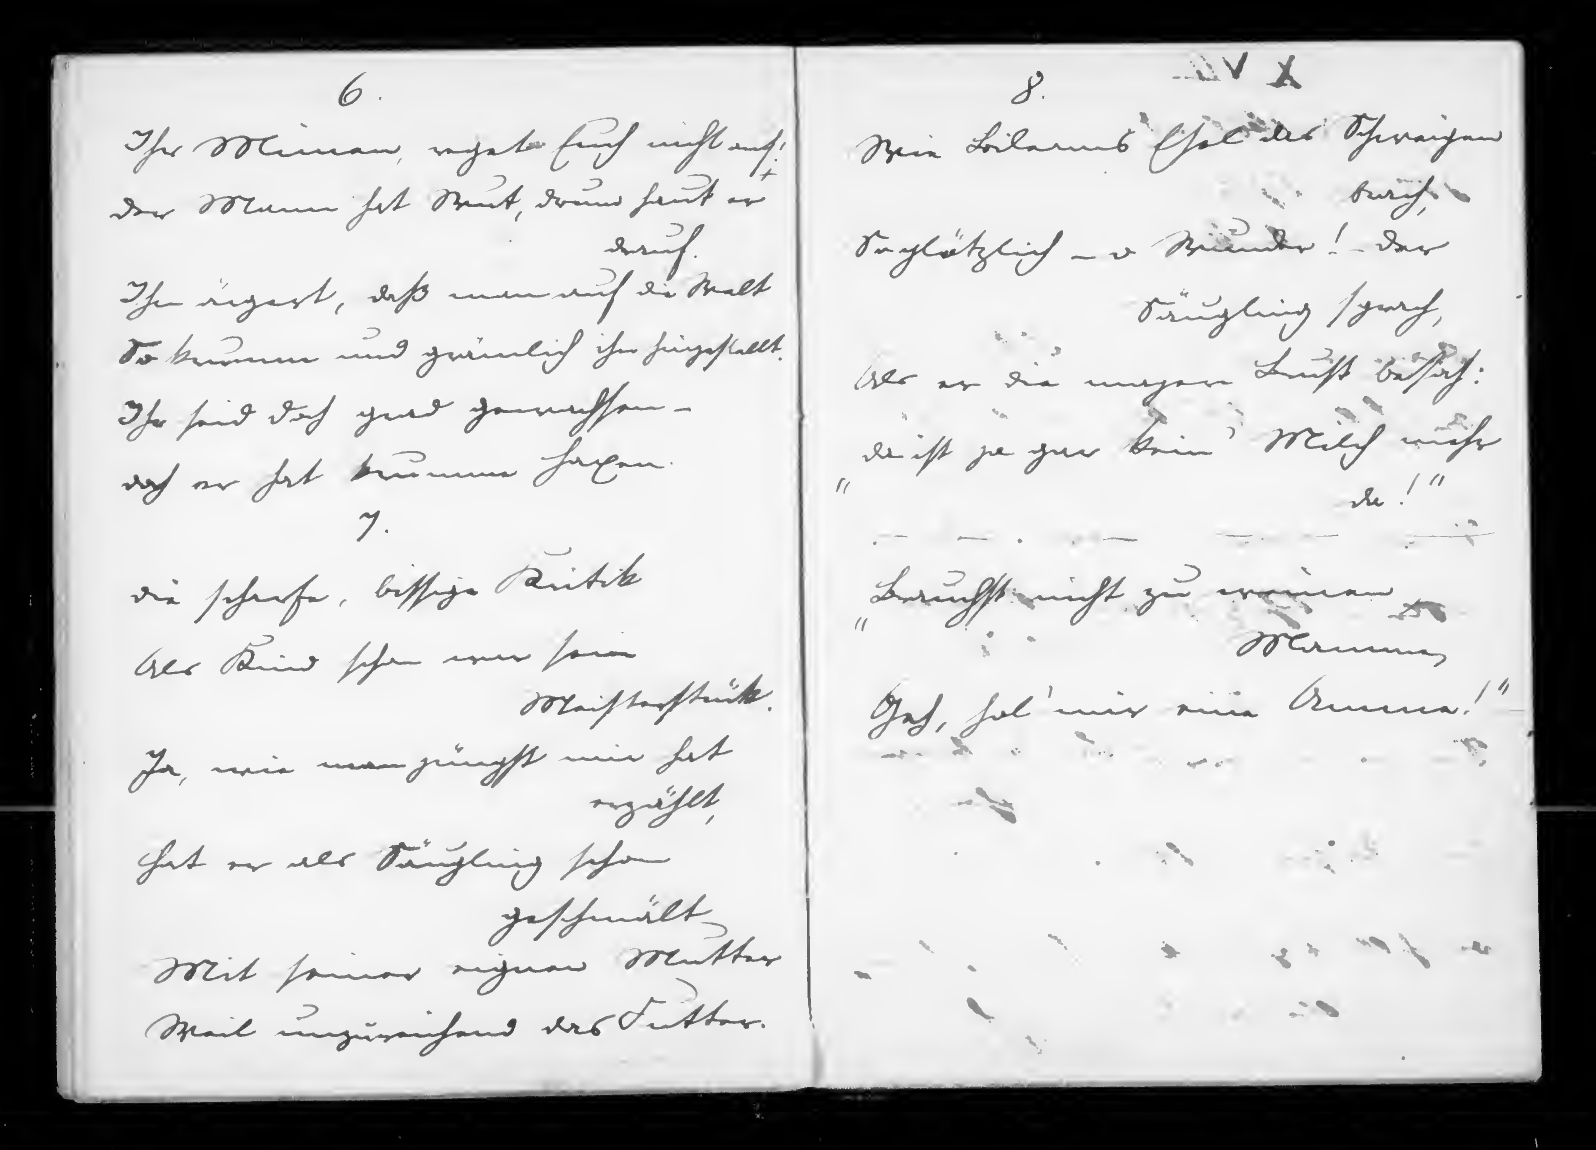 6.
Ihr Mimen, reget Euch nicht auf!
der Mann hat Wut, drum haut er
drauf.
Ihn ärgert, daß man auf die Welt
So krumm und grämlich ihn hingestellt.
Ihr seid doch grad gewachsen –
doch er hat krumme Haxen.
7.
die scharfe, bissige Kritik
Als Kind schon war sein
Meisterstück.
Ja, wie man jüngst mir hat
erzählt,
hat er als Säugling schon
geschmält
Mit seiner eignen Mutter
Weil unzureichend das Futter.
8.
Wie Bileams Esel das Schweigen
brach,
So plötzlich – o Wunder! – der
Säugling sprach,
Als er die magere Brust besah:
"da ist ja gar kein' Milch mehr
da!"
"Brauchst nicht zu weinen
Mamma,
Geh, hol' mir eine Amme!"